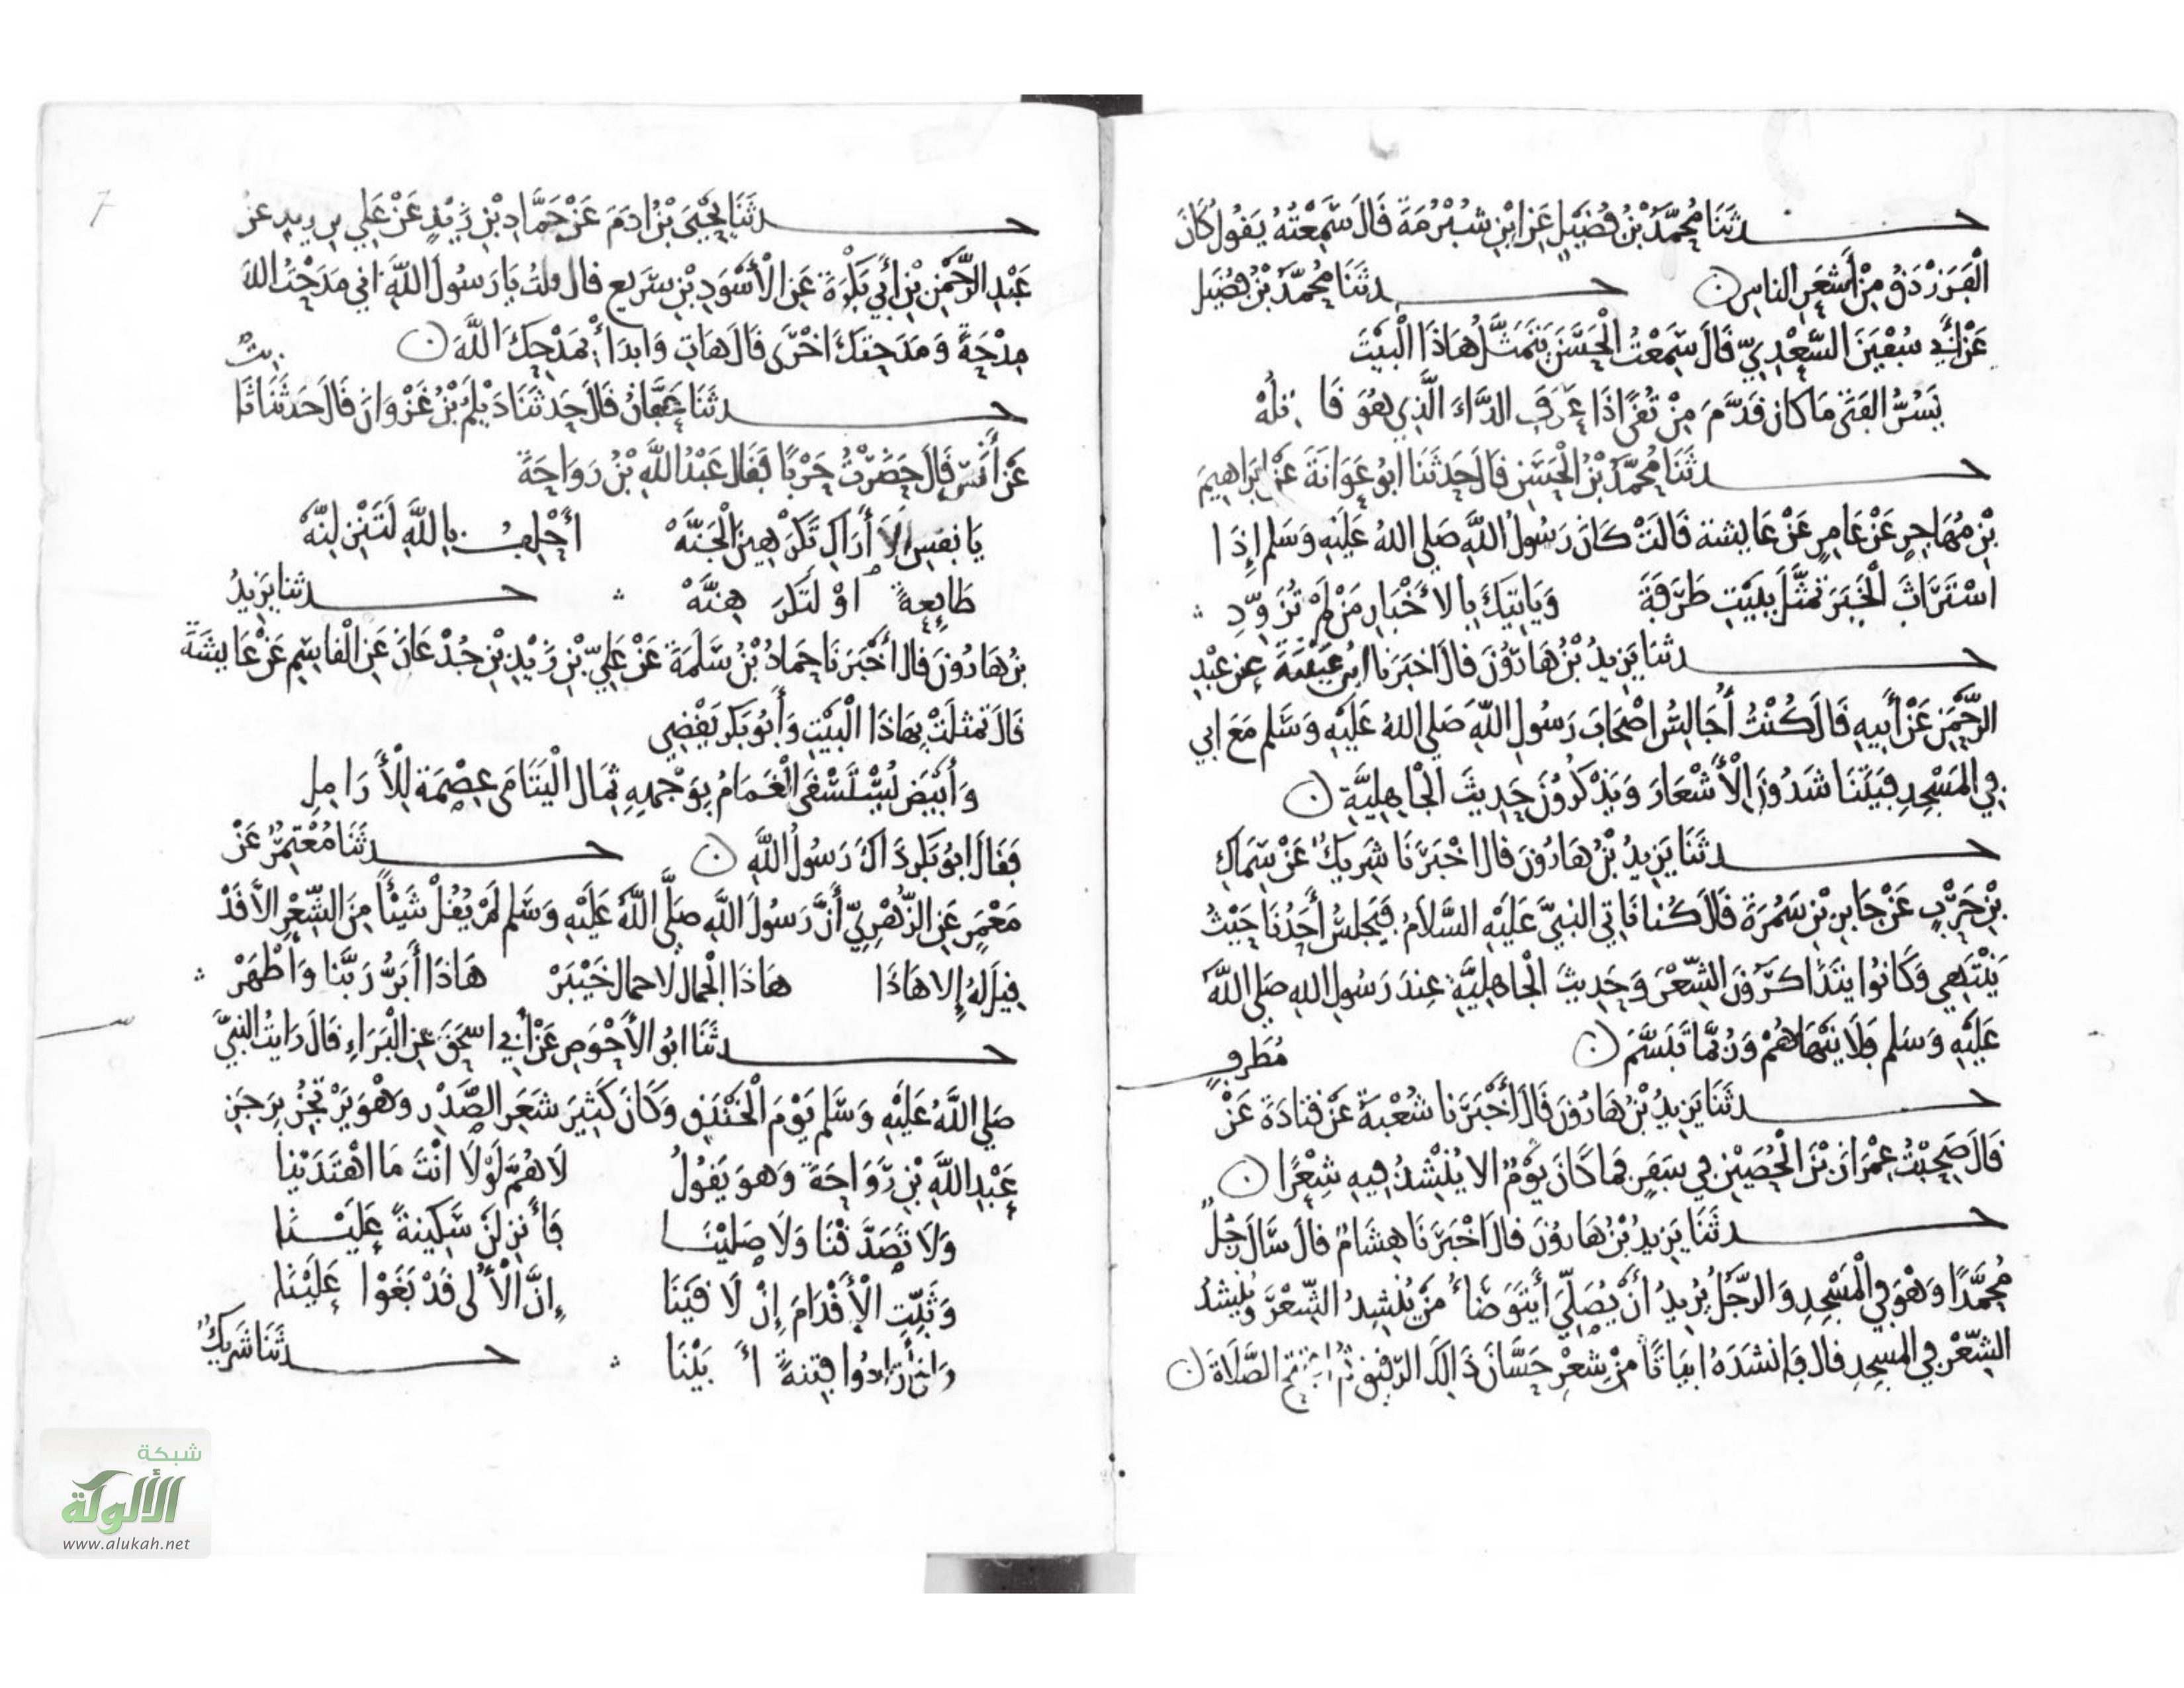 حدثنا محمد بن فضيل عن ابن شبرمة قال سمعته يقول كان
الفرزدق من أشعر الناس ن حدثنا محمد بن فضيل
عن أبي سفين السعدي قال سمعت الحسن يتمثل هاذا البيت
يسر الفتى ما كان قدم من تقى اذا عرف الداء الذي هو قاتله
حدثنا محمد بن الحسن قال حدثنا ابو عوانة عن ابراهيم
بن مهاجر عن عامر عن عايشة قالت كان رسول الله صلى الله عليه وسلم إذا
استراث الخبر تمثل ببيت طرفة وياتيك بالأخبار من لم تزود
حدثنا يزيد بن هارون قال اخبرنا ابن عيينة عن عبد
الرحمن عن أبيه قال كنت أجالس اصحاب رسول الله صلى الله عليه وسلم مع ابي
في المسجد فيتناشدون الأشعار ويذكرون حديث الجاهلية ن
حدثنا يزيد بن هارون قال اخبرنا شريك عن سماك
بن حرب عن جابر بن سمرة قال كنا ناتي النبي عليه السلام فيجلس أحدنا حيث
ينتهي وكانوا يتذاكرون الشعر وحديث الجاهلية عند رسول الله صلى الله
عليه وسلم ولا ينهاهم وربما تبسم ن مطرف
حدثنا يزيد بن هارون قال أخبرنا شعبة عن قتادة عن
قال صحبت عمران بن الحصين في سفر فما كان يوم الا ينشد فيه شعرا ن
حدثنا يزيد بن هارون قال اخبرنا هشام قال سال رجل
محمدا وهو في المسجد والرجل يريد أن يصلي أيتوضأ من ينشد الشعر وينشد
الشعر في المسجد قال فانشده ابياتا من شعر حسان ذالك الرقيق ثم افتتح الصلاة ن
7
حدثنا يحيى بن ادم عن حماد بن زيد عن علي بن زيد عن
عبد الرحمن بن أبي بكرة عن الأسود بن سريع قال قلت يا رسول الله اني مدحت الله
مدحة ومدحتك اخرى قال هات وابدأ بمدحك الله ن
حدثنا عفان قال حدثنا ديلم بن غزوان قال حدثنا ثابت
عن أنس قال حضرت حربا فقال عبد الله بن رواحة
يا نفس ألا أراك تكرهين الجنه أحلف بالله لتنزلنه
طايعة او لتكرهنه حدثنا يزيد
بن هارون قال أخبرنا حماد بن سلمة عن علي بن زيد بن جدعان عن القاسم عن عايشة
قال تمثلت بهاذا البيت وأبو بكر يقضي
وأبيض يستسقى الغمام بوجهه ثمال اليتامى عصمة للأرامل
فقال ابو بكر ذاك رسول الله ن حدثنا معتمر عن
معمر عن الزهري أن رسول الله صلى الله عليه وسلم لم يقل شيئا من الشعر الا قد
قيل له إلا هاذا هاذا الحمال لا حمال خيبر هاذا أبر ربنا وأطهر
حدثنا ابو الأحوص عن أبي اسحق عن البراء قال رايت النبي
صلى الله عليه وسلم يوم الخندق وكان كثير شعر الصدر وهو يرتجز برجز
عبد الله بن رواحة وهو يقول لاهم لولا انت ما اهتدينا
ولا تصدقنا ولا صلينا فأنزلن سكينة علينا
وثبت الأقدام إن لاقينا إن الألى قد بغوا علينا
وان أرادوا فتنة أبينا حدثنا شريك
شبكة
الألوكة
www.alukah.net